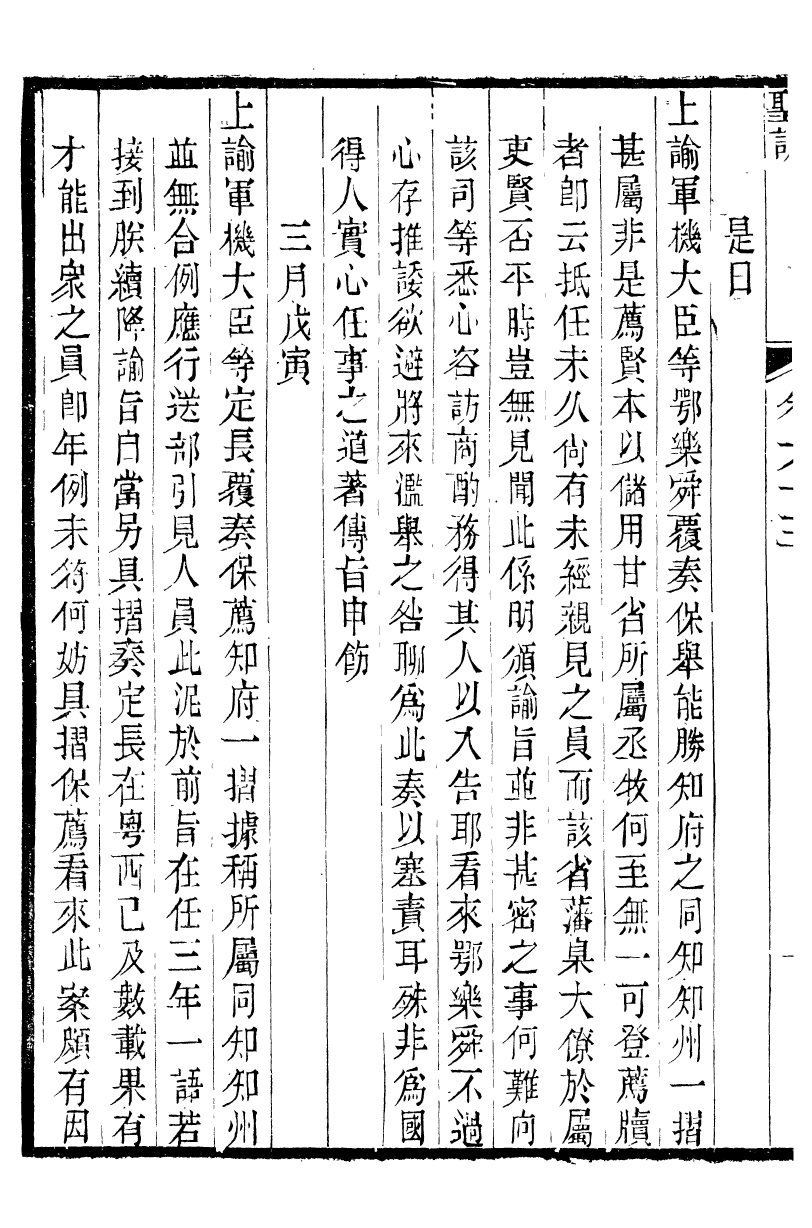 聖訓
是日
上諭軍機大臣等鄂樂舜覆奏保舉能勝知府之同知知州一摺
甚屬非是薦賢本以儲用甘省所屬丞牧何至無一可登薦牘
者卽云抵任未久尙有未經親見之員而該省藩臬大僚於屬
吏賢否平時豈無見聞此係明頒諭旨並非甚密之事何難向
該司等悉心咨訪商酌務得其人以入告耶看來鄂樂舜不過
心存推諉欲避將來濫舉之咎聊爲此奏以塞責耳殊非爲國
得人實心任事之道著傳旨申飭
三月戊寅
上諭軍機大臣等定長覆奏保薦知府一摺據稱所屬同知知州
並無合例應行送部引見人員此泥於前旨在任三年一語若
接到朕續降諭旨自當另具摺奏定長在粵西已及數載果有
才能出衆之員卽年例未符何妨具摺保薦看來此案頗有因